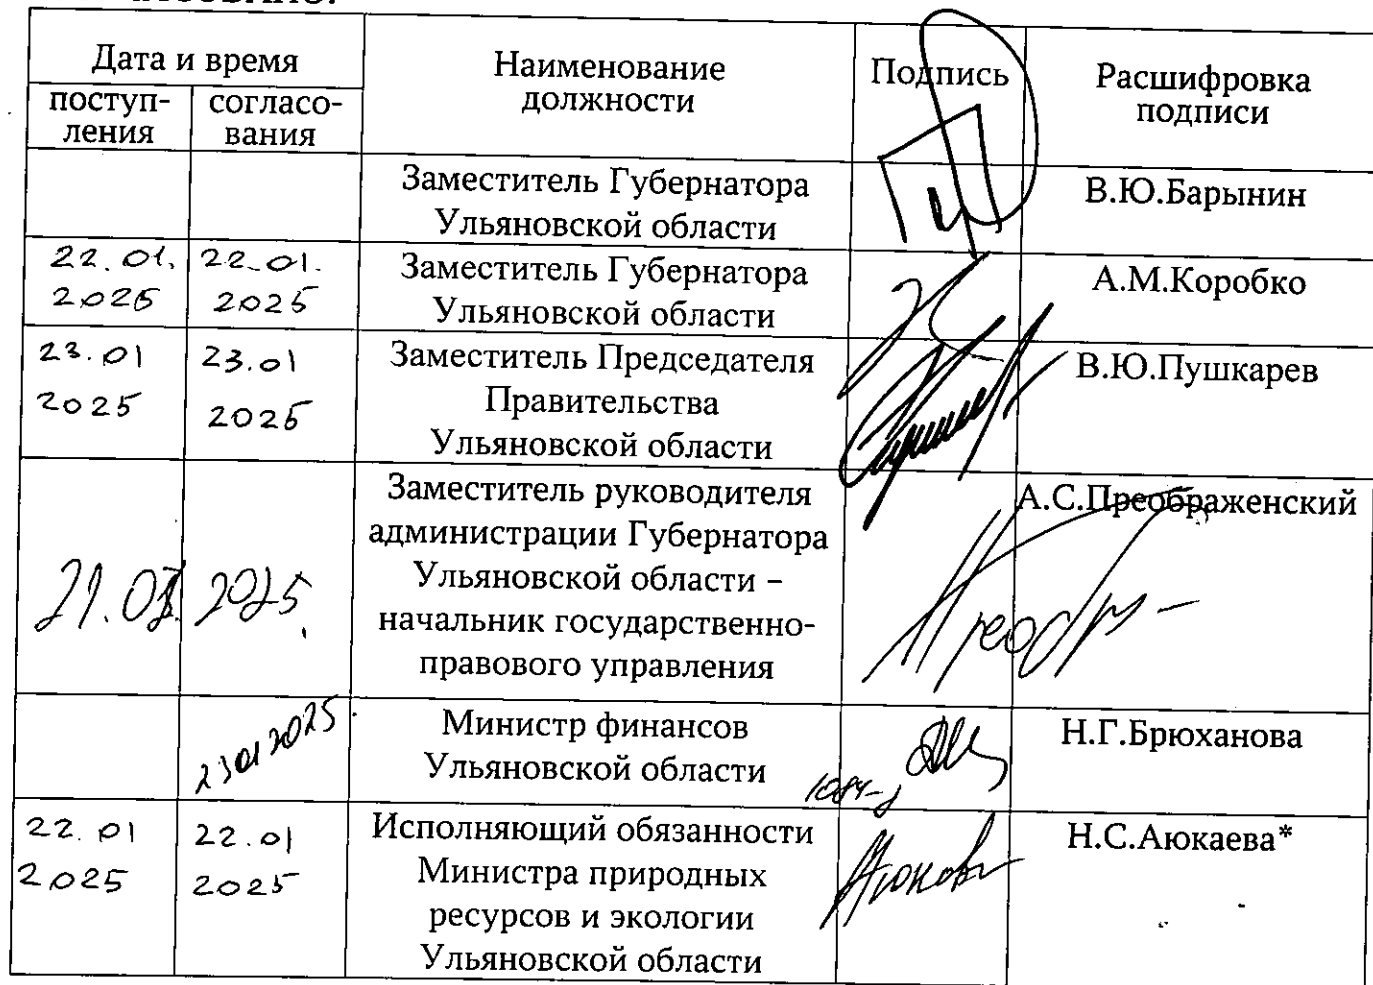 Дата и время
Наименование
должности
Подпись
Расшифровка
подписи
поступ-
ления
согласо-
вания
Заместитель Губернатора
Ульяновской области
В.Ю.Барынин
22.01.
2025
22.01.
2025
Заместитель Губернатора
Ульяновской области
А.М.Коробко
23.01
2025
23.01
2025
Заместитель Председателя
Правительства
Ульяновской области
В.Ю.Пушкарев
21.01 2025.
Заместитель руководителя
администрации Губернатора
Ульяновской области –
начальник государственно-
правового управления
А.С.Преображенский
23 01 2025.
Министр финансов
Ульяновской области
Н.Г.Брюханова
22.01
2025
22.01
2025
Исполняющий обязанности
Министра природных
ресурсов и экологии
Ульяновской области
Н.С.Аюкаева*